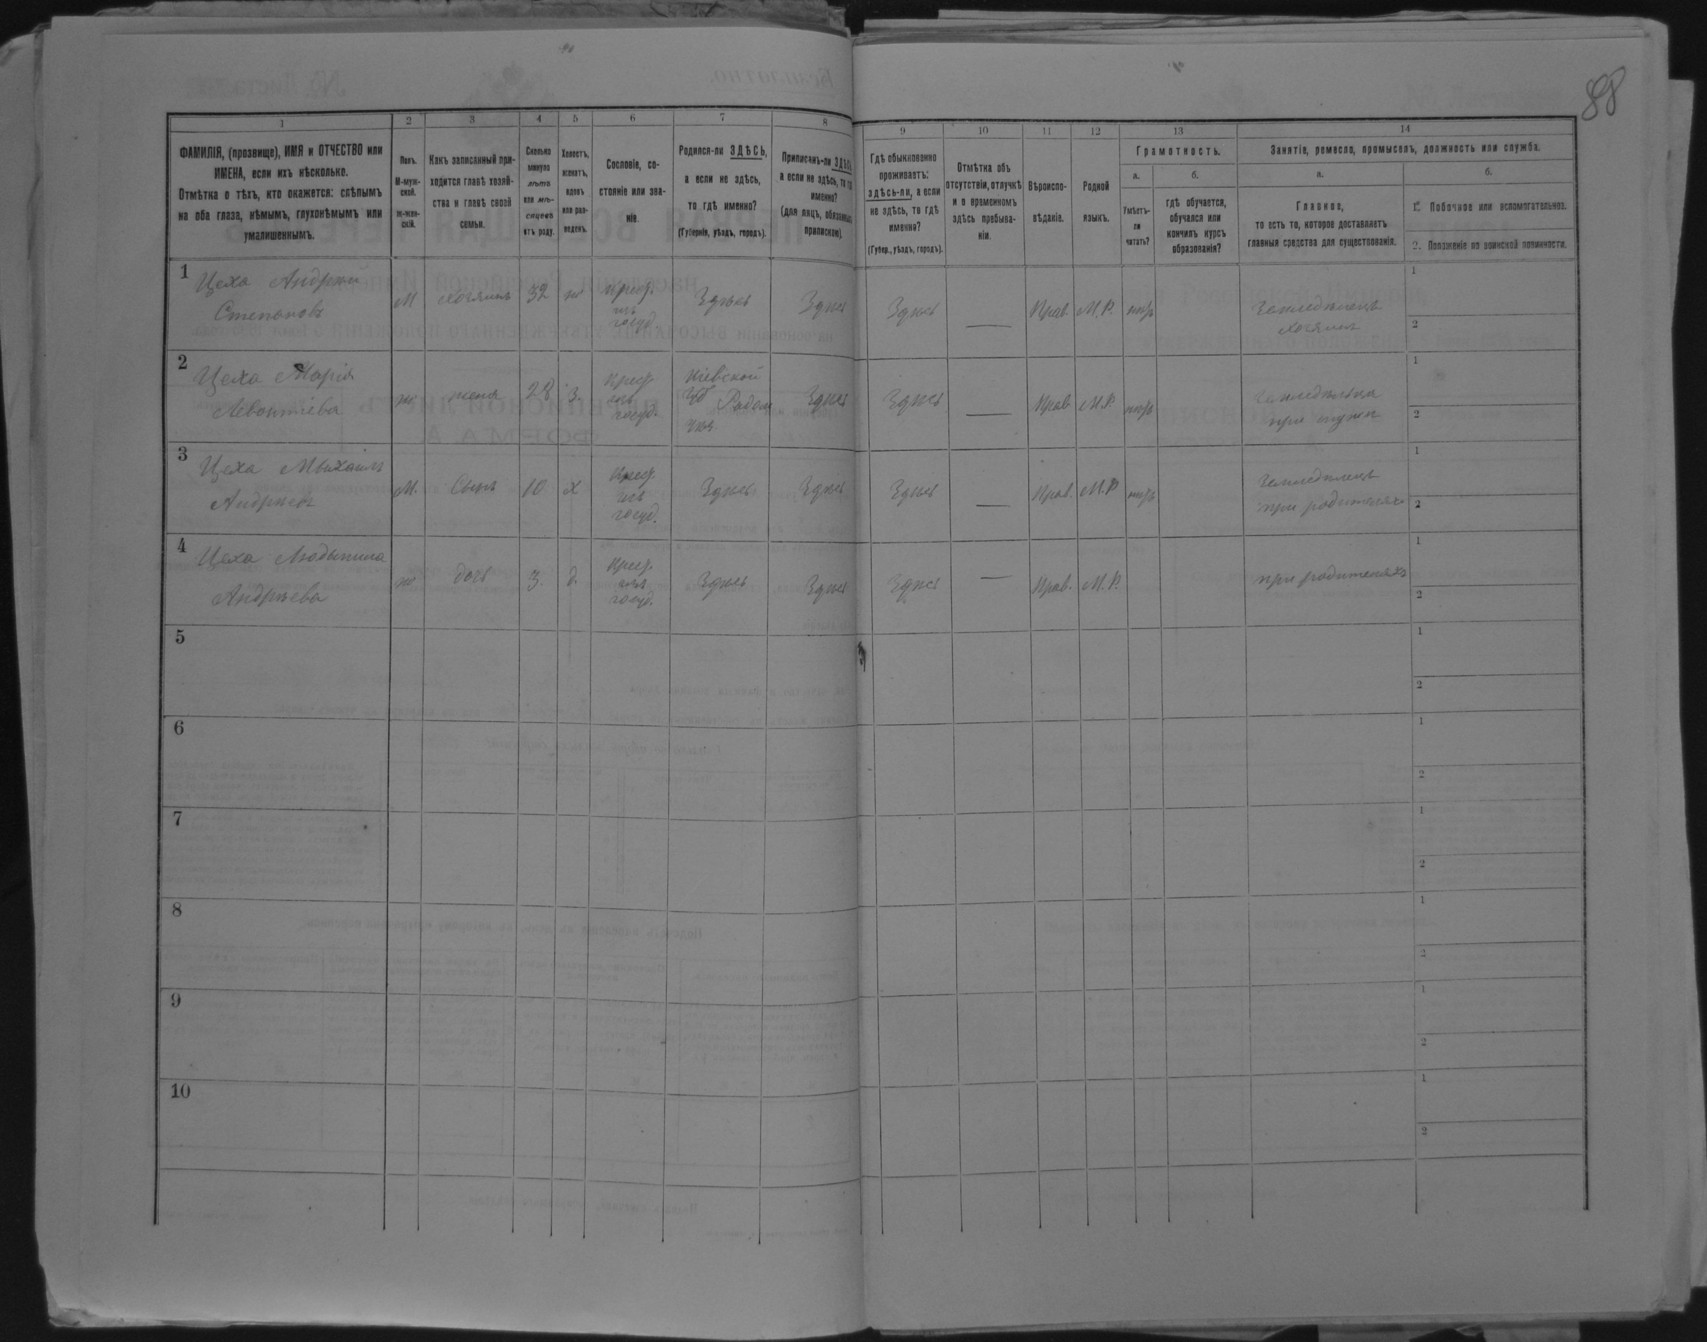 88
1
2
3
4
5
6
7
8
9
10
11
12
13
14
ФАМИЛІЯ, (прозвище), ИМЯ и ОТЧЕСТВО или
ИМЕНА, если ихъ нѣсколько.
Отмѣтка о тѣхъ, кто окажется: слѣпымъ
на оба глаза, нѣмымъ, глухонѣмымъ или
умалишеннымъ.
Полъ.
М-муж-
ской.
ж-жен-
скій.
Какъ записанный при-
ходится главѣ хозяй-
ства и главѣ своей
семьи.
Сколько
минуло
лѣтъ
или мѣ-
сяцевъ
отъ роду.
Холостъ,
женатъ,
вдовъ
или раз-
веденъ.
Сословіе, со-
стояніе или зва-
ніе.
Родился-ли ЗДѢСЬ,
а если не здѣсь,
то гдѣ именно?
(Губернія, уѣздъ, городъ).
Приписанъ-ли ЗДѢСЬ,
а если не здѣсь, то гдѣ
именно?
(для лицъ, обязанныхъ
припискою).
Гдѣ обыкновенно
проживаетъ:
здѣсь-ли, а если
не здѣсь, то гдѣ
именно?
(Губер., уѣздъ, городъ).
Отмѣтка объ
отсутствіи, отлучкѣ
и о временномъ
здѣсь пребыва-
ніи.
Вѣроиспо-
вѣданіе.
Родной
языкъ.
Грамотность.
а.
Умѣетъ-
ли
читать?
б.
гдѣ обучается,
обучался или
кончилъ курсъ
образованія?
Занятіе, ремесло, промыселъ, должность или служба.
а.
Главное,
то есть то, которое доставляетъ
главныя средства для существованія.
б.
1. Побочное или вспомогательное.
2. Положеніе по воинской повинности.
1
Цеха Андрѣй
Степановъ
М
хозяинъ
32
ж
Крест.
изъ
госуд.
Здѣсь
Здѣсь
Здѣсь
—
Прав.
М.Р.
нѣтъ
Земледѣлецъ
хозяинъ
1
2
2
Цеха Марія
Левонтіева
ж
жена
28
З.
Крест.
изъ
госуд.
Кіевской
Здѣсь
Здѣсь
—
Прав
М.Р.
нѣтъ
при мужѣ
1
2
3
Цеха Михаилъ
Андрѣевъ
М.
Сынъ
10
Х
Крест.
изъ
госуд.
Здѣсь
Здѣсь
Здѣсь
—
Прав.
М.Р.
нѣтъ
Земледѣлецъ
при родителяхъ
1
2
4
Цеха
Андрѣева
ж
дочь
3.
д.
Крест.
изъ
госуд.
Здѣсь
Здѣсь
Здѣсь
—
Прав.
М.Р.
при родителяхъ
1
2
5
1
2
6
1
2
7
1
2
8
1
2
9
1
2
10
1
2